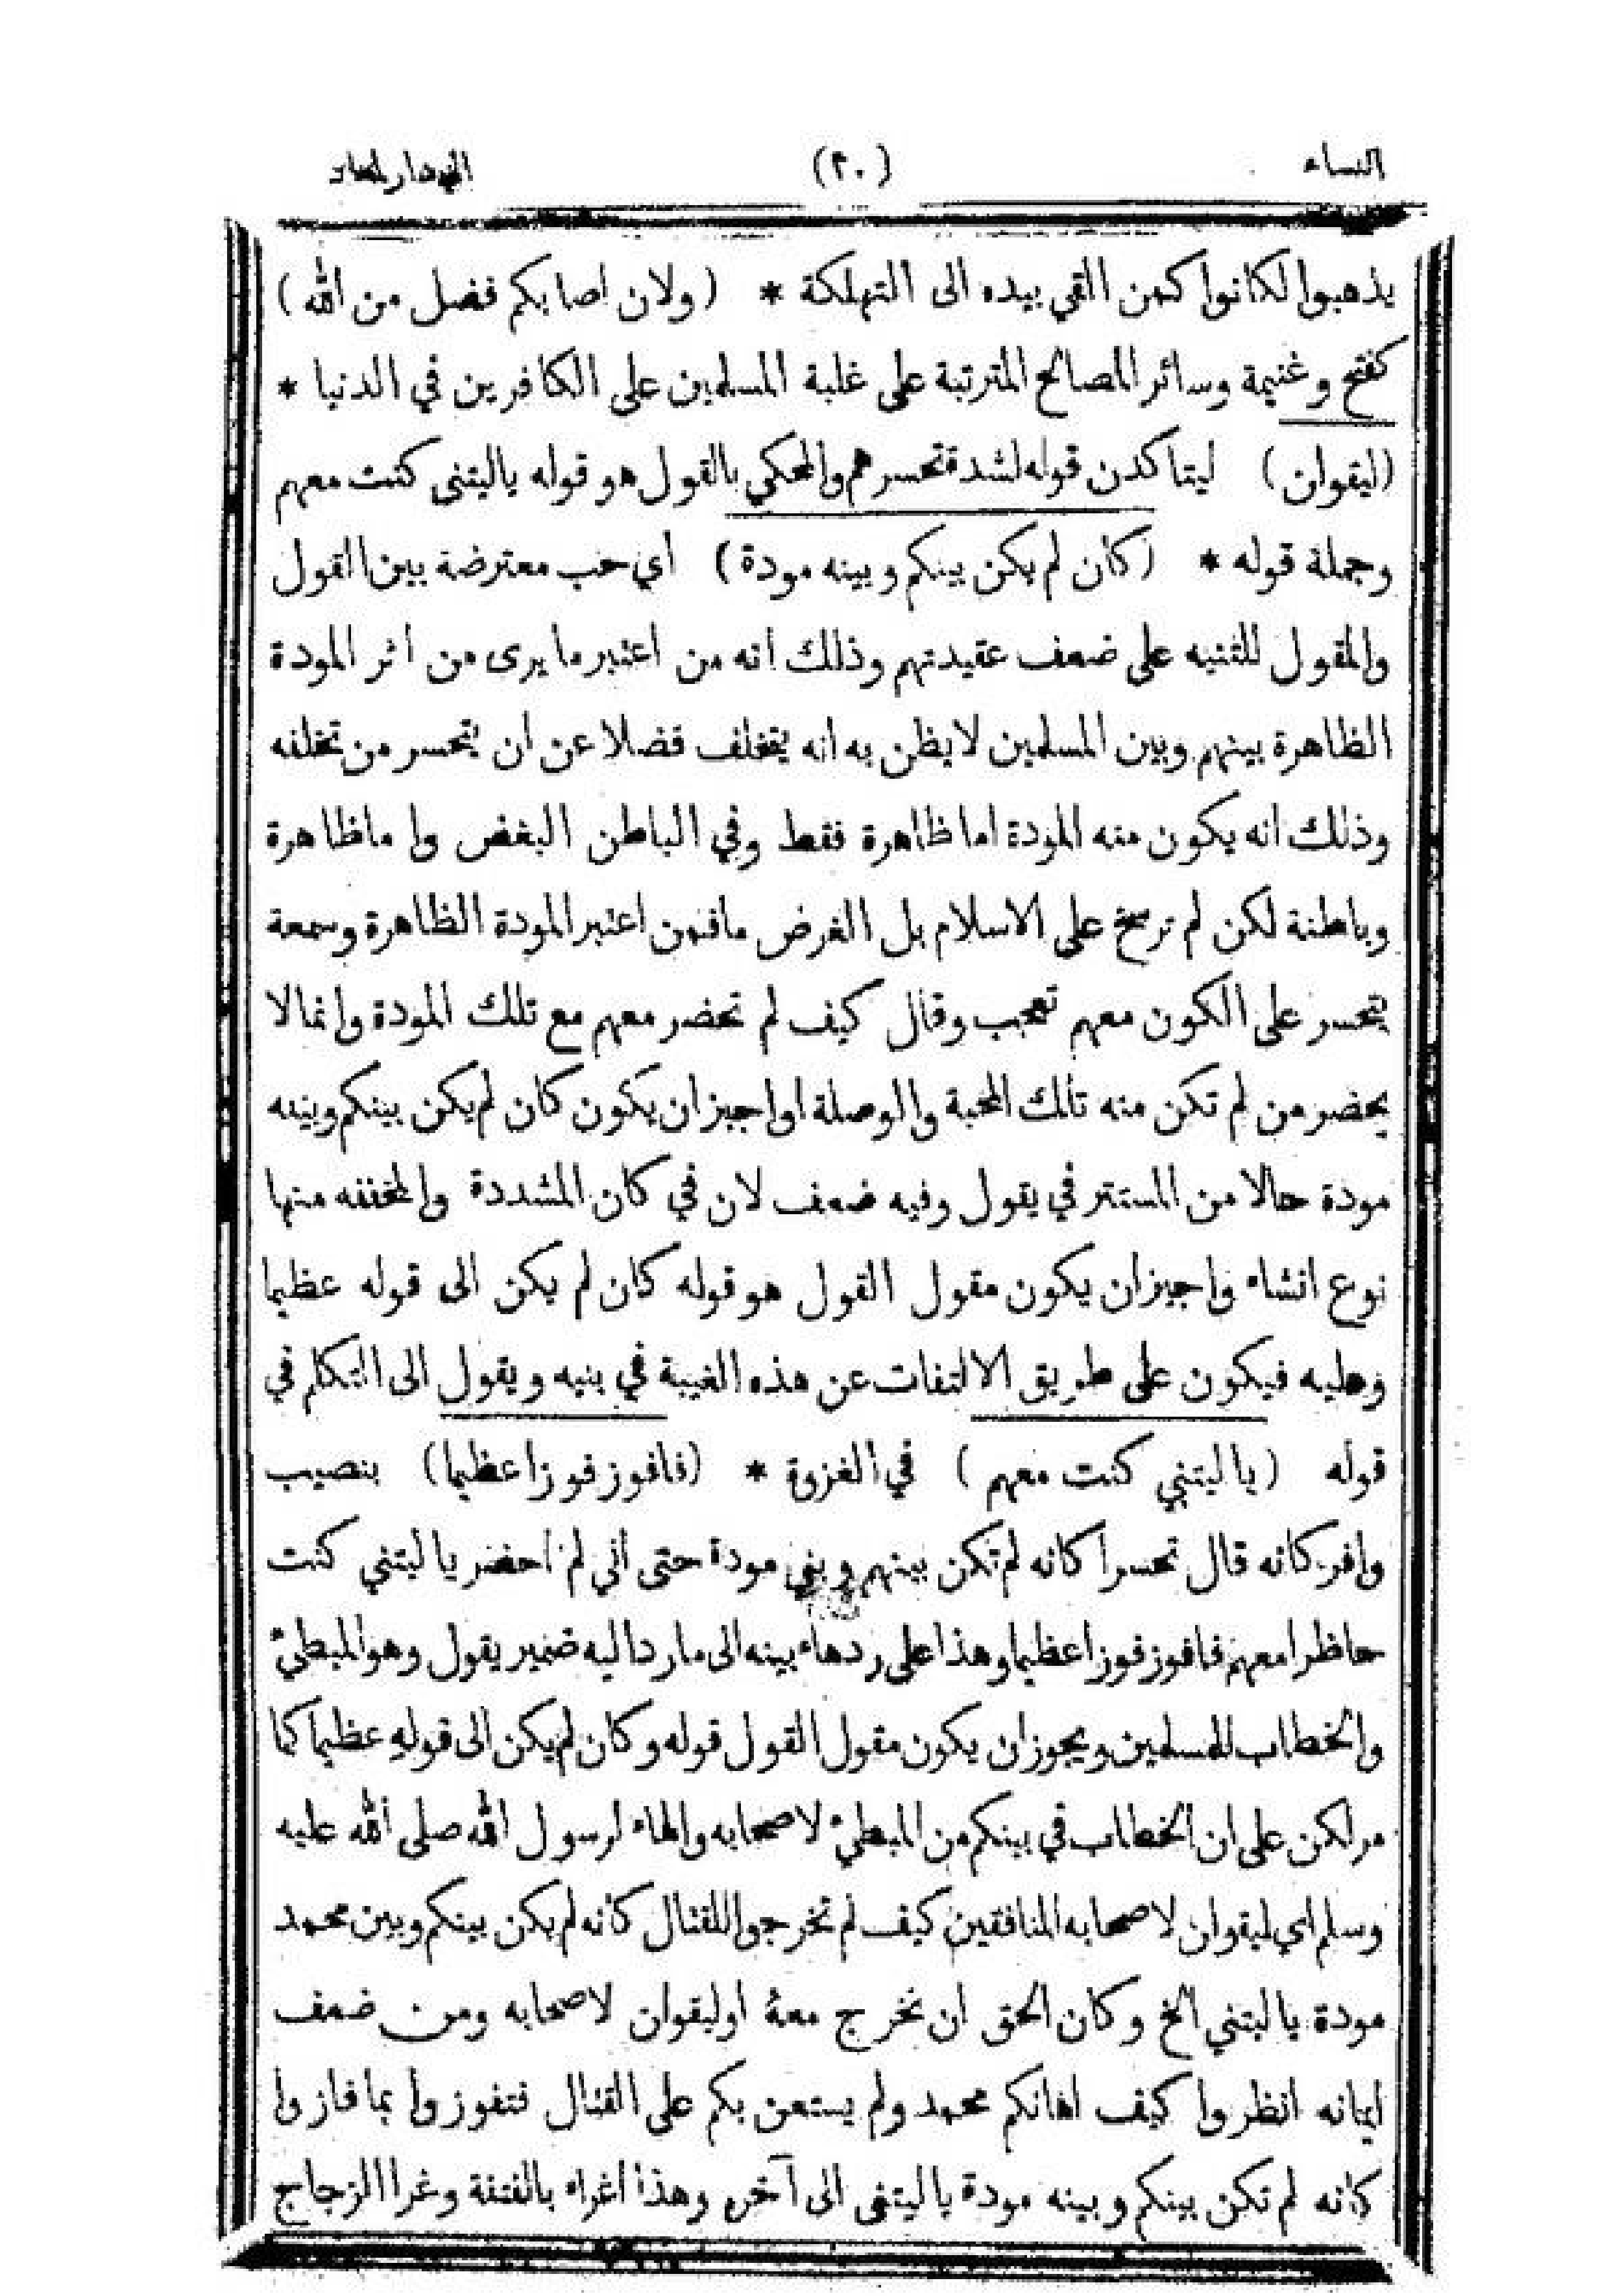 النساء (٢٠)
يذهبوا لكانوا كمن القي بيده الى التهلكة * (ولان اصابكم فضل من الله)
كفتح وغنيمة وسائر المصالح المترتبة على غلبة المسلمين على الكافرين في الدنيا *
(ليقولن) ليتاكدن قوله لشدة تحسرهم والمحكي بالقول هو قوله ياليتنى كنت معهم
وجملة قوله * (كان لم يكن بينكم وبينه مودة) اي حب معترضة بين القول
والمقول للتنبيه على ضعف عقيدتهم وذلك انه من اعتبر ما يرى من اثر المودة
الظاهرة بينهم وبين المسلمين لا يظن به انه يتخلف فضلا عن ان يتحسر من تخلفه
وذلك انه يكون منه المودة اما ظاهرة فقط وفي الباطن البغض واما ظاهرة
وباطنة لكن لم ترسخ على الاسلام بل الغرض ما فمن اعتبر المودة الظاهرة وسمعة
يتحسر على الكون معهم تعجب وقال كيف لم تحضر معهم مع تلك المودة وانما لا
يحضر من لم تكن منه تلك المحبة والوصلة او اجيز ان يكون كان لم يكن بينكم وبينه
مودة حالا من المستتر في يقول وفيه ضعف لان في كان المشددة والمخففه منها
نوع انشاء واجيز ان يكون مقول القول هو قوله كان لم يكن الى قوله عظيما
وعليه فيكون على طريق الالتفات عن هذه الغيبة في بنيه ويقول الى التكلم في
قوله (ياليتني كنت معهم) في الغزوة * (فافوز فوزا عظيما) بنصيب
وافر كانه قال تحسرا كانه لم تكن بينهم وبني مودة حتى اني لم احضر ياليتني كنت
حاظرا معهم فافوز فوزا عظيما وهذا على رد هاء بينه الى ما رد اليه ضمير يقول وهو المبطيء
والخطاب للمسلمين ويجوز ان يكون مقول القول قوله وكان لم يكن الى قوله عظيما كما
مر لكن على ان الخطاب في بينكم من المبطيء لاصحابه والهاء لرسول الله صلى الله عليه
وسلم اي ليقولن لاصحابه المنافقين كيف لم تخرجوا للقتال كانه لم يكن بينكم وبين محمد
مودة ياليتني الخ وكان الحق ان نخرج معه او ليقولن لاصحابه ومن ضعف
ايمانه انظروا كيف اهانكم محمد ولم يستعن بكم على القتال فتفوزوا بما فازوا
كانه لم تكن بينكم وبينه مودة ياليتنى الى آخره وهذا اغراء بالفتنة وغرا الزجاج